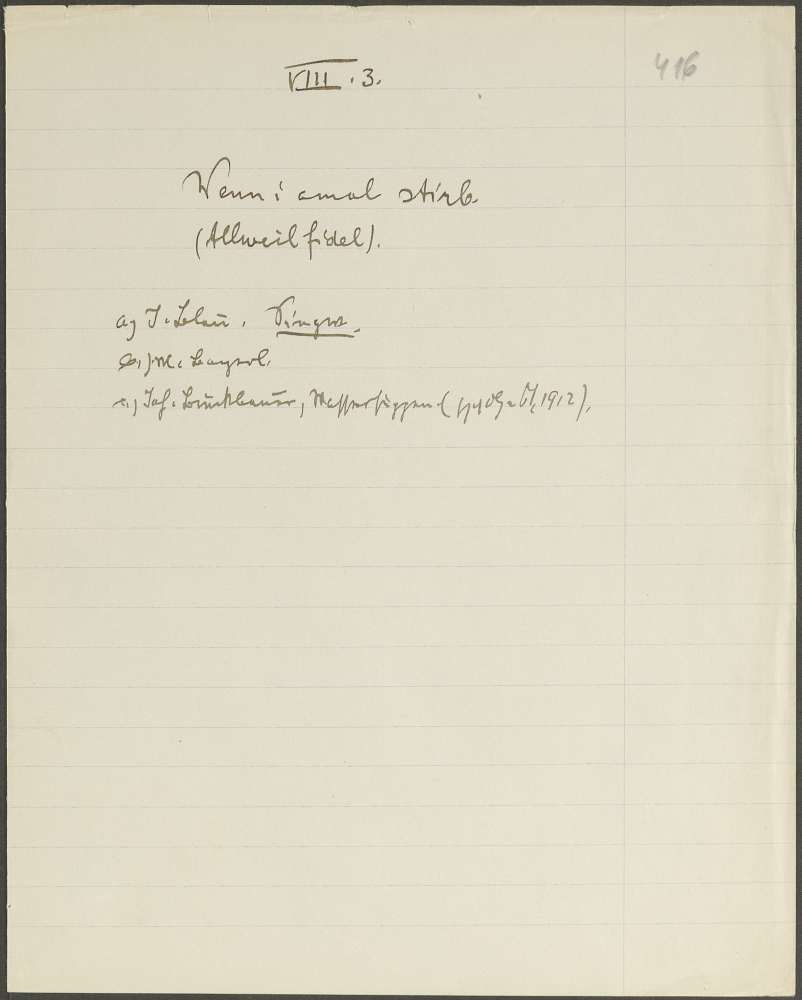 VIII. 3.
416
Wenn i amal stirb
(Allweil fidel).
a) J. Blau.
b.) M. Bayrol.
c.) Jos. Bruckbauer, Wassersuppen ( 1912).